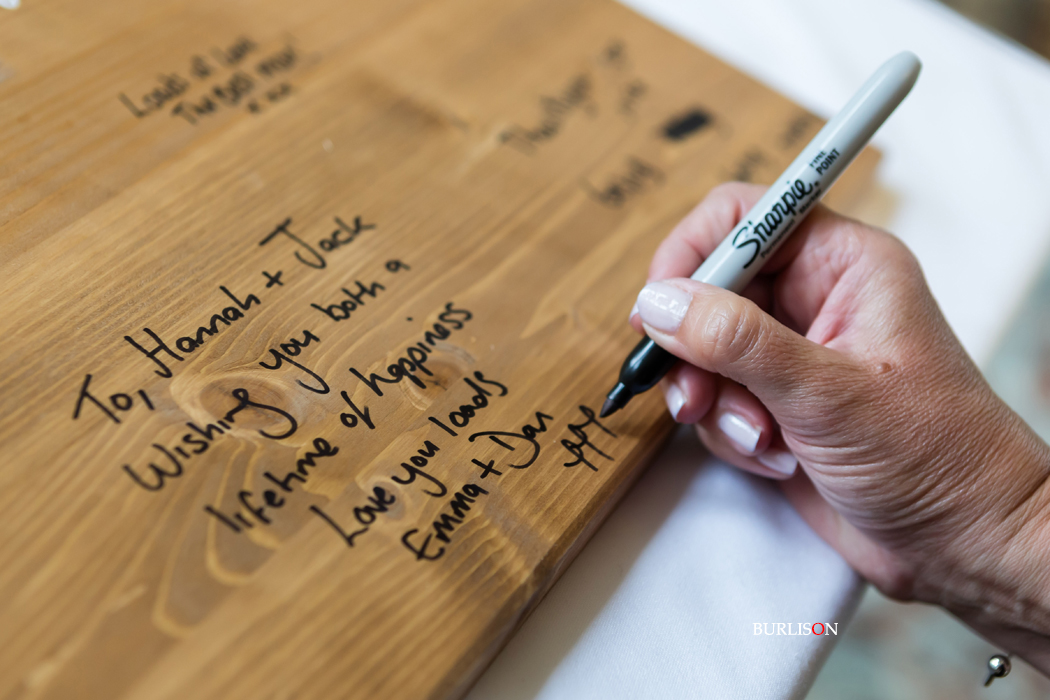 Loads of love
The
To, Hannah + Jack
Wishing you both a
lifetime of happiness
Love you loads
Emma + Dan
xxx
Sharpie.
FINE
POINT
BURLISON